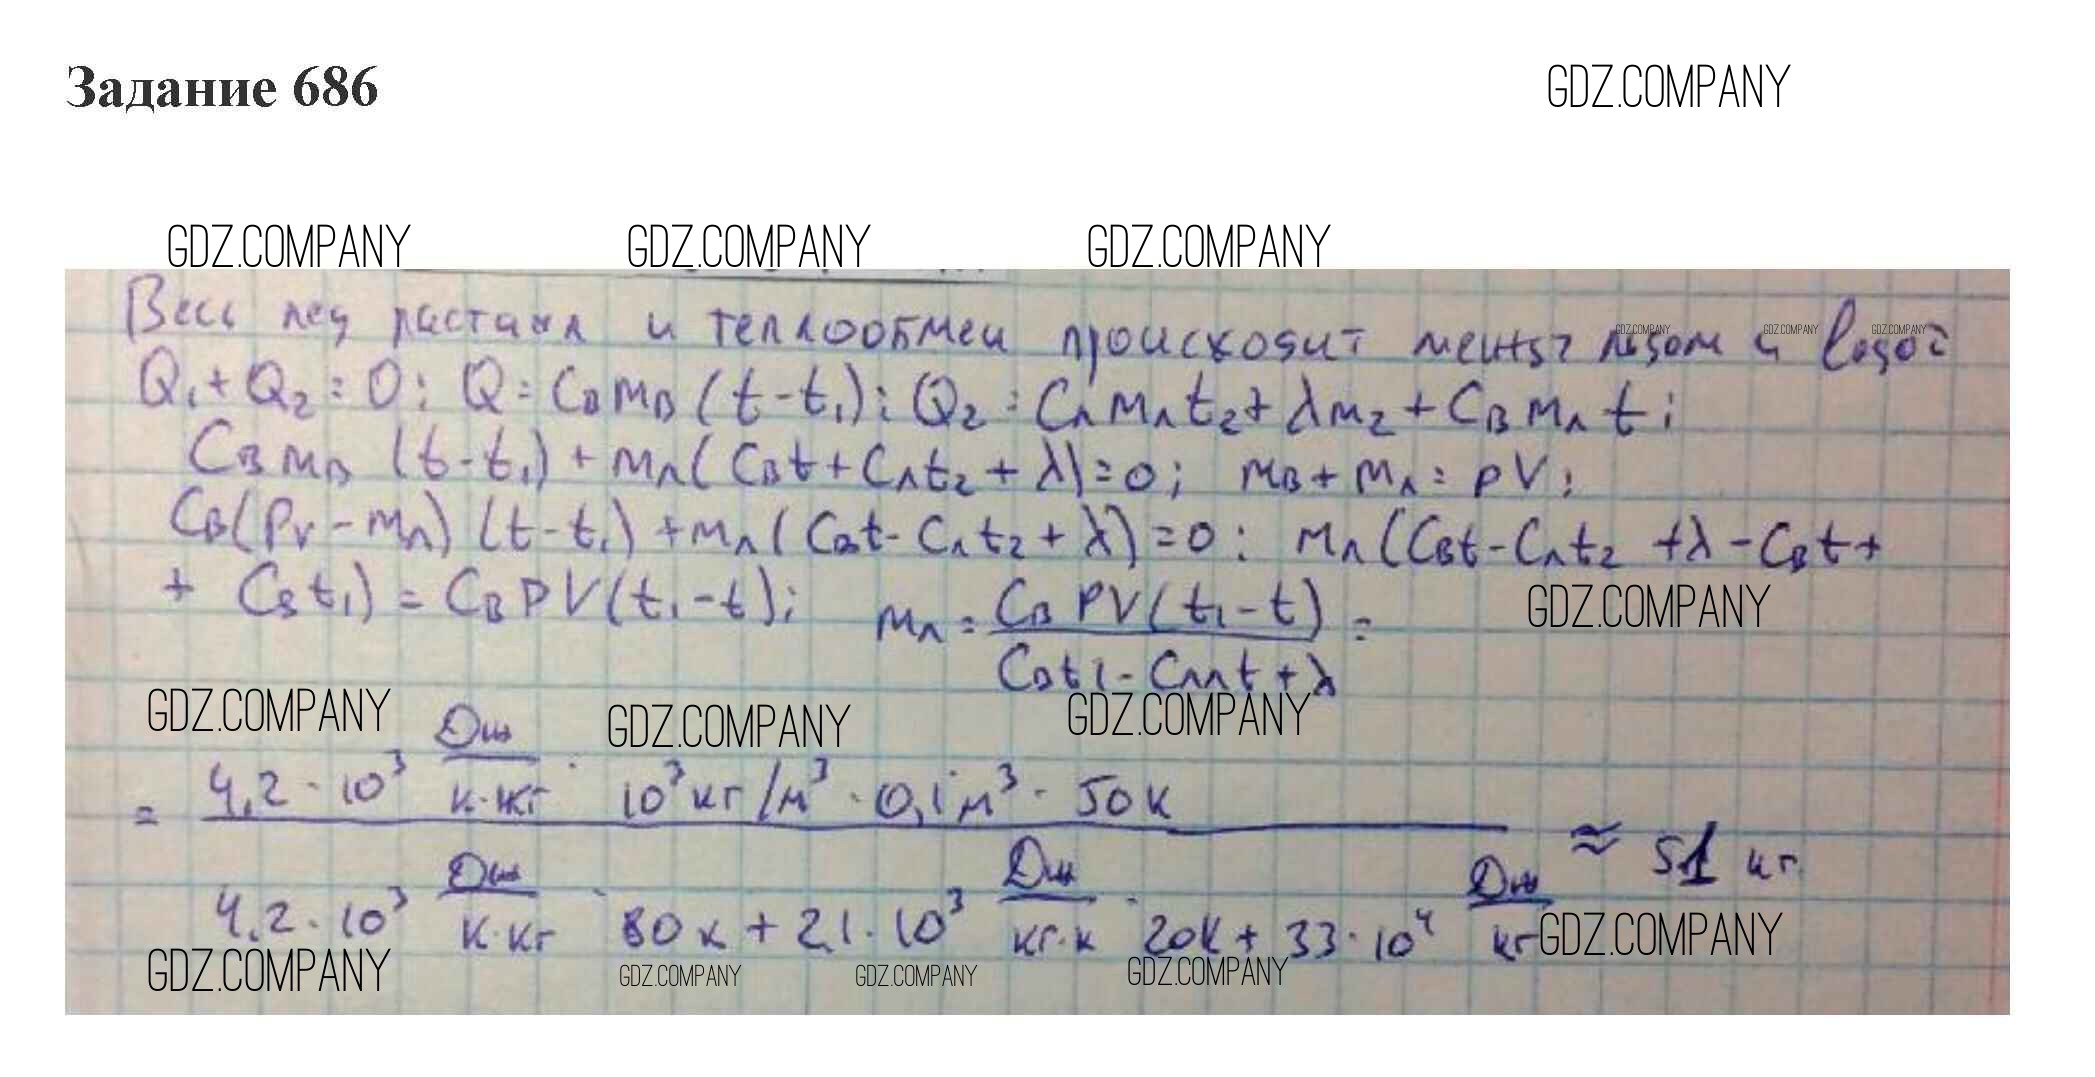 Задание 686
GDZ.COMPANY
GDZ.COMPANY GDZ.COMPANY GDZ.COMPANY
Весь лед растаял и теплообмен происходит между льдом и водой
GDZ.COMPANY GDZ.COMPANY GDZ.COMPANY
Q₁ + Q₂ = 0; Q = CвMв (t - t₁); Q₂ = CлMлt₂ + λm₂ + CвMлt;
CвMв (t - t₁) + Mл(Cвt + Cлt₂ + λ) = 0; Mв + Mл = ρV;
Cв(ρV - Mл) (t - t₁) + Mл(Cвt - Cлt₂ + λ) = 0; Mл(Cвt - Cлt₂ + λ - Cвt +
+ Cвt₁) = CвρV(t₁ - t); Mл = CвρV(t₁ - t) / Cвt₁ - Cллt + λ =
GDZ.COMPANY
GDZ.COMPANY GDZ.COMPANY GDZ.COMPANY
= 4,2 · 10³ Дж/К·кг · 10³ кг/м³ · 0,1 м³ · 50К
4,2 · 10³ Дж/К·кг · 80К + 2,1 · 10³ Дж/кг·К · 20К + 33 · 10⁴ Дж/кг ≈ 51 кг
GDZ.COMPANY
GDZ.COMPANY GDZ.COMPANY GDZ.COMPANY GDZ.COMPANY